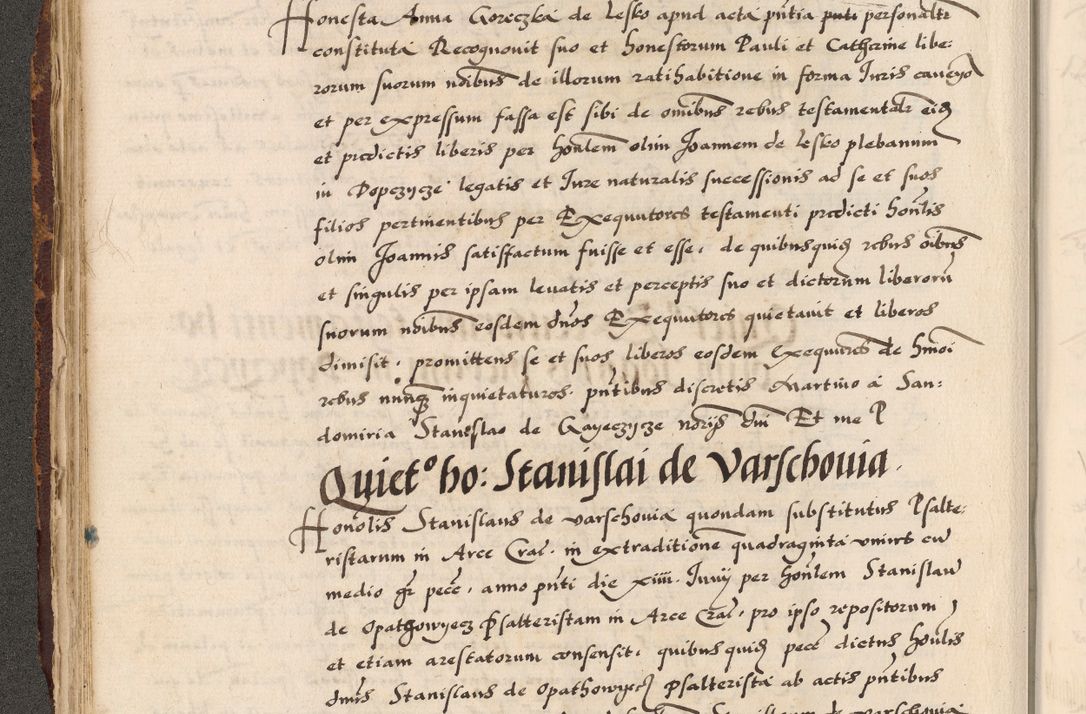 Honesta Anna Goreczka de Lesko apud acta pñtia puti personaltr
constituta Recognouit suo et honestorum Pauli et Catherine libe:
rorum suorum nõibus de illorum ratihabitione in forma Iuris cauenda
et per expressum fassa est sibi de omibus rebus testamentalr eidē
et predictis liberis per honlem olim Joannem de Lesko plebanum
in Dopczycze legatis et Iure naturalis successionis ad se et suos
filios pertinentibus per Exequutores testamenti predicti honlis
olim Joannis satisfactum fuisse et esse, de quibusquidē rebus oibus
et singulis per ipsam leuatis et perceptis suo et dictorum liberorū
suorum nõibus eosdem dños Exequutores quietauit et liberos
dimisit, promittens se et suos liberos eosdem Exequures de hmoi
rebus nunq̃ inquietaturos. pñtibus discretis Martino a San:
domiria Stanislao de Gayeczycze norijs dui Et me P
Quietº ho: Stanislai de Varschouia.
Honolis Stanislaus de varschouia quondam substitutus Psalte:
ristarum in Arce Crac̃. in extraditione quadraginta vnius cū
medio gr̃ pecc̃, anno pñti die xiiii Iunij per honlem Stanislaū
de Opathowyecz Psalteristam in Arce Crac̃, pro ipso repositorum
et etiam arestatorum consensit, quibusquidē pecc̃ dictus honlis
dnus Stanislaus de Opathowyecz Psalterista ab actis pñtibus
de varschouia